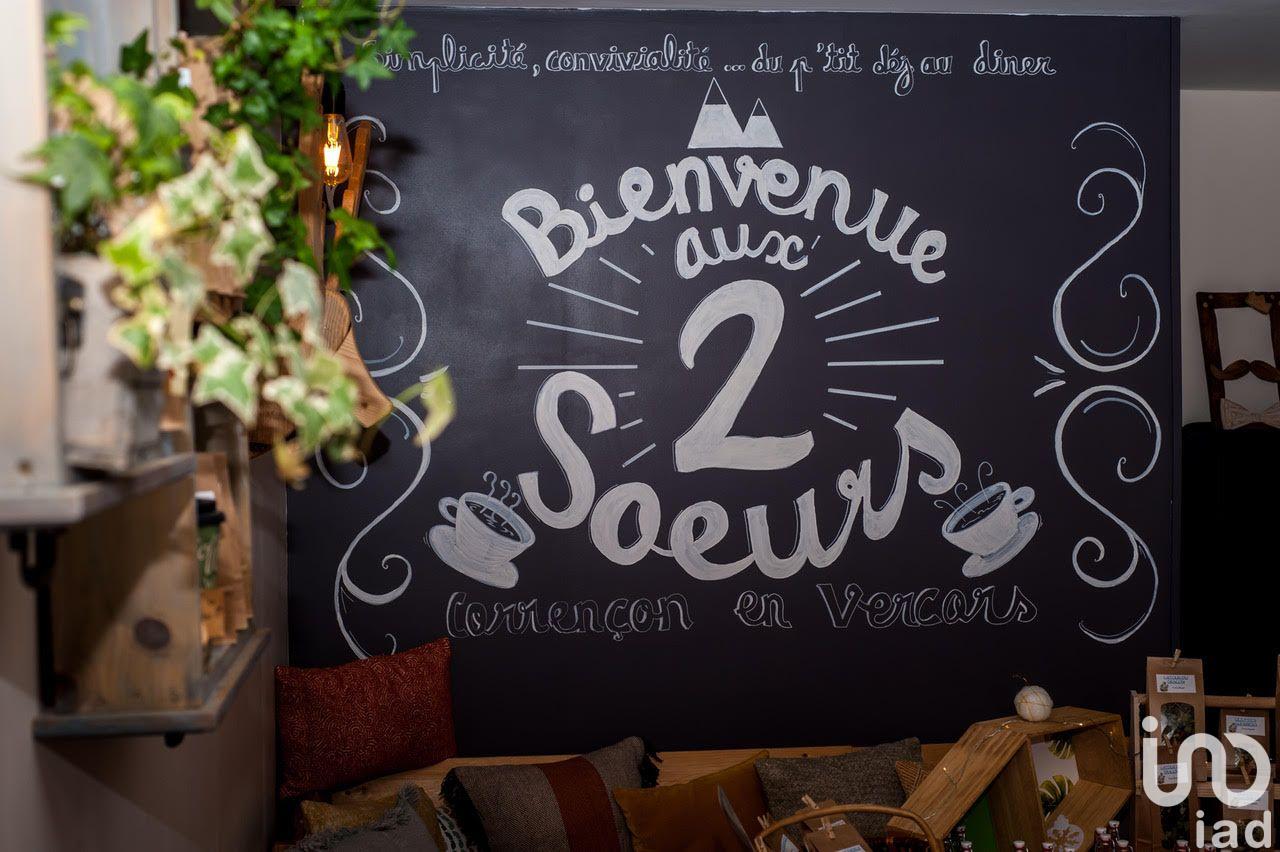 Simplicité, convivialité ... du p'tit déj au dîner
Bienvenue
aux
2
Soeurs
Corrençon en Vercors
iad